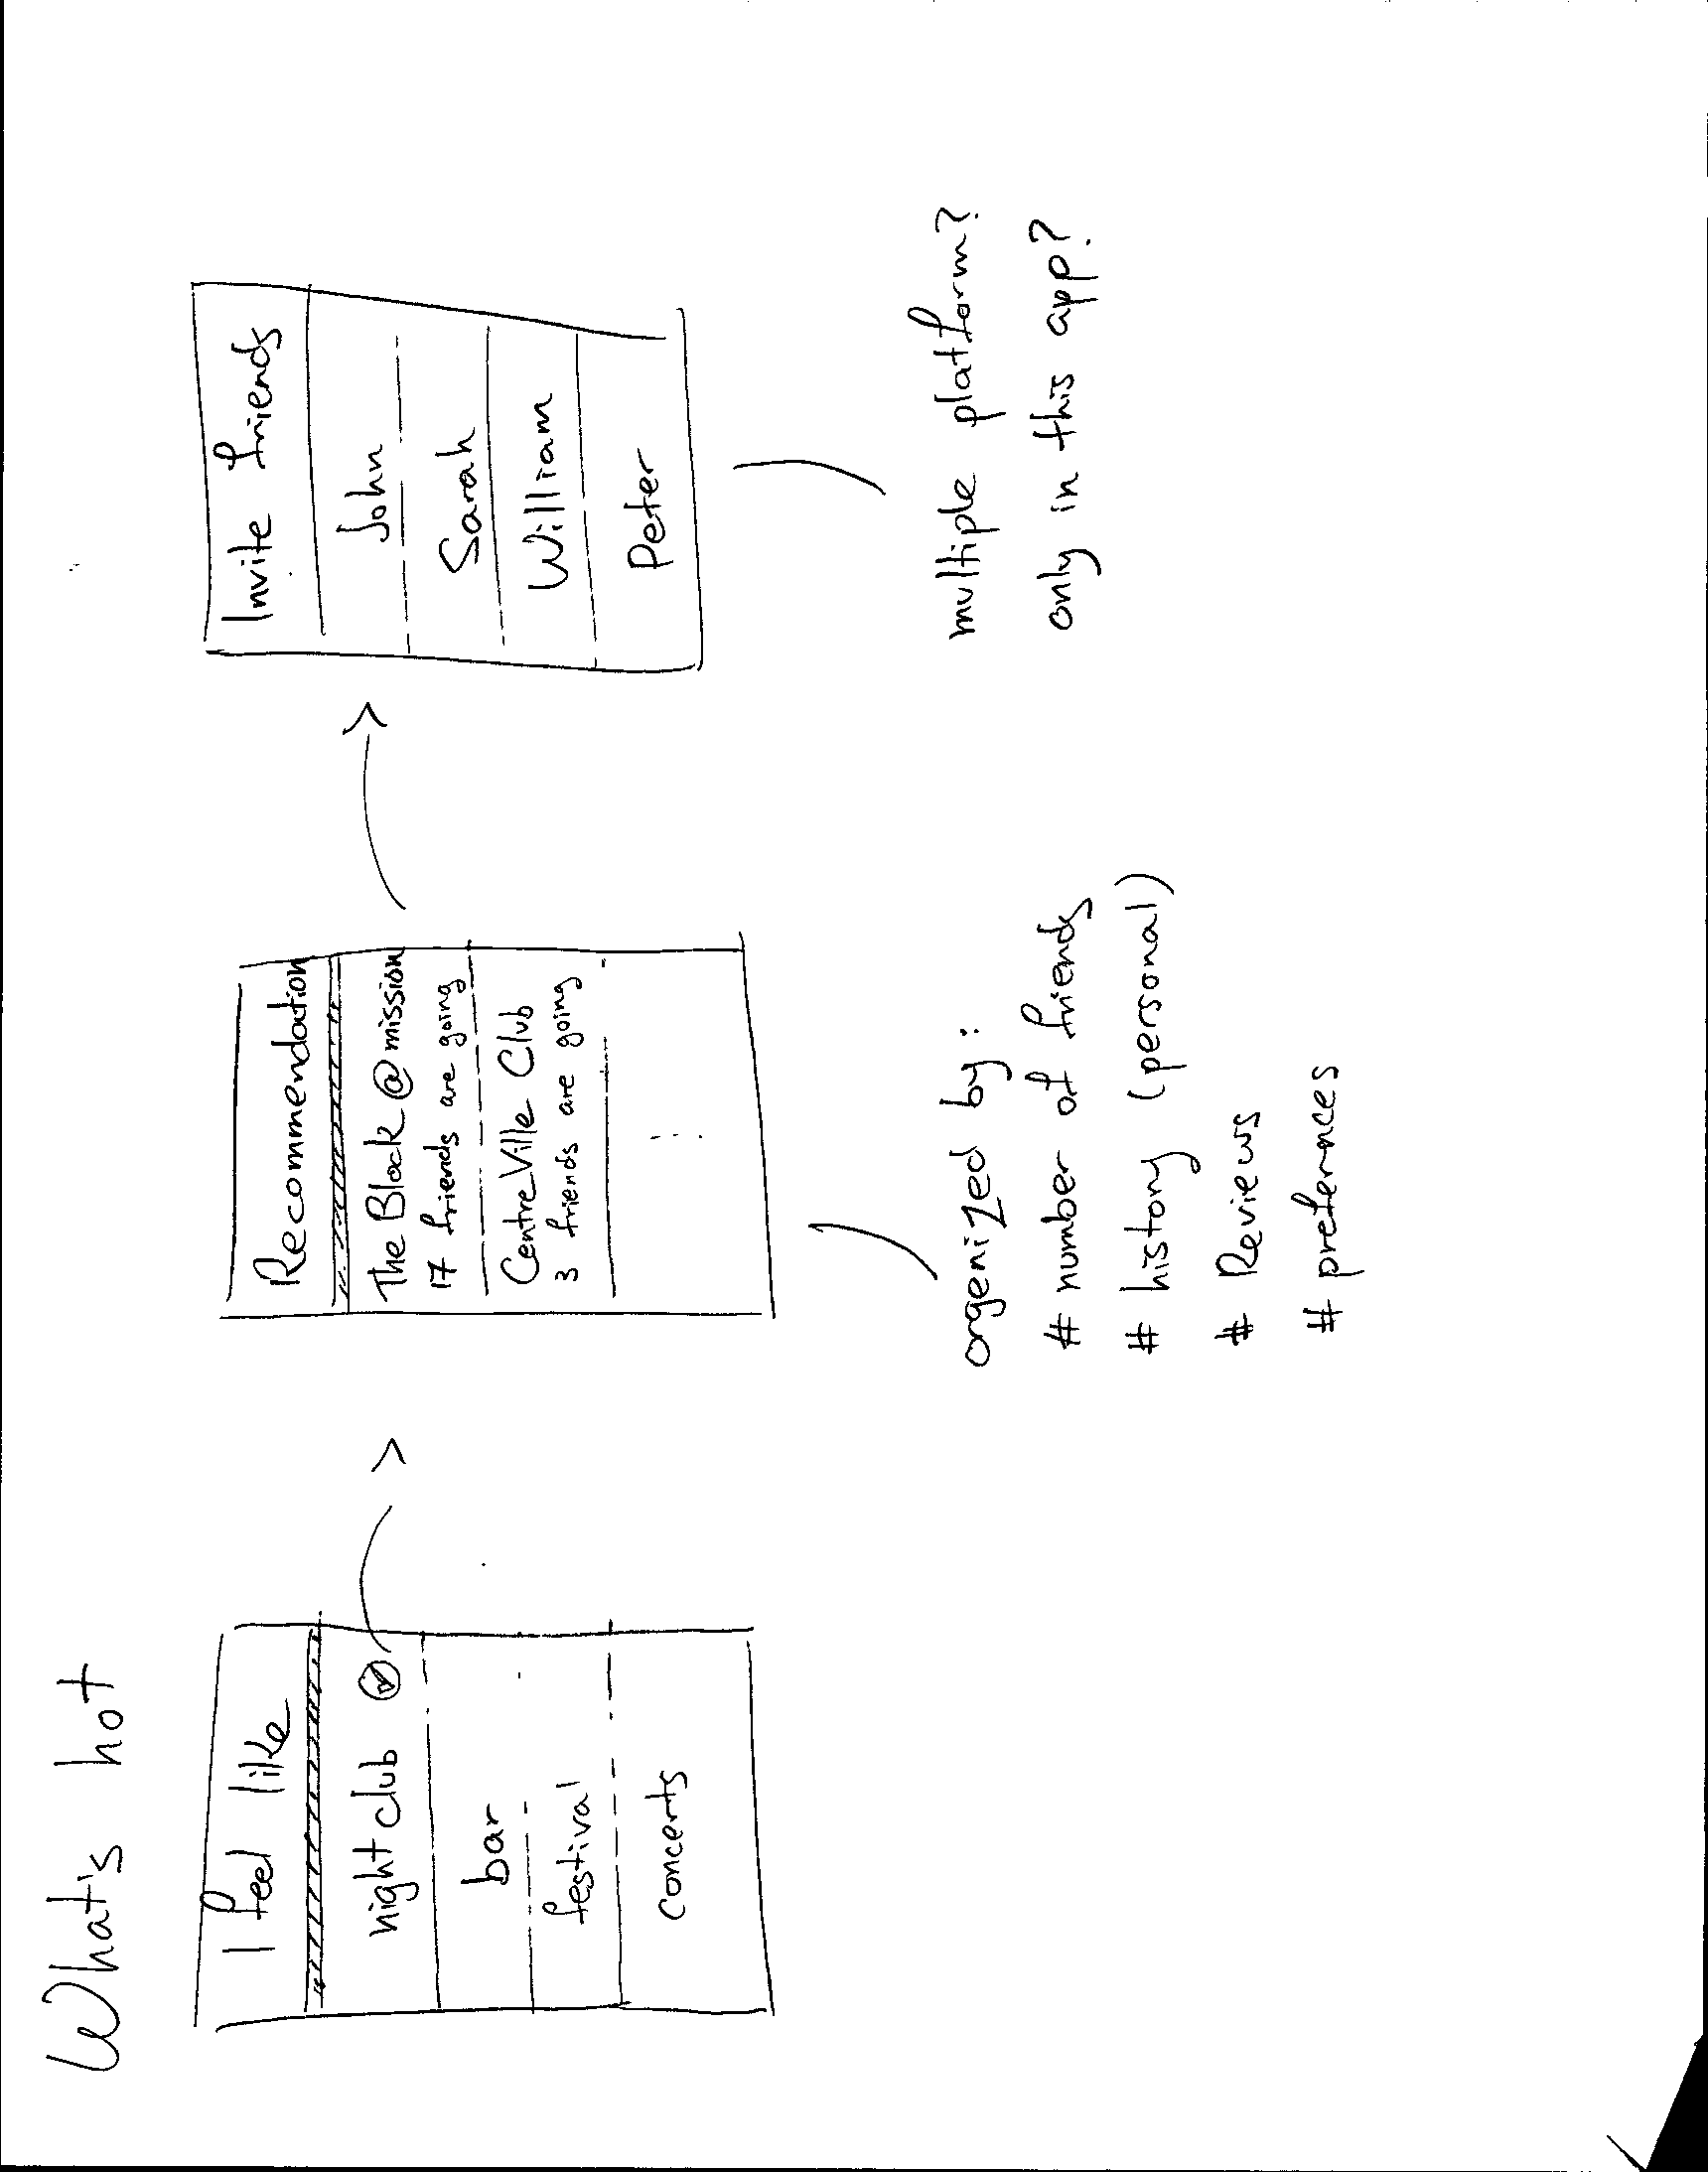 What's hot
I feel like
night club
bar
festival
concerts
Recommendation
The Block @ mission
17 friends are going
CentreVille Club
3 friends are going
orgenized by:
# number of friends
# history (personal)
# Reviews
# preferences
Invite friends
John
Sarah
William
Peter
multiple platform?
only in this app?